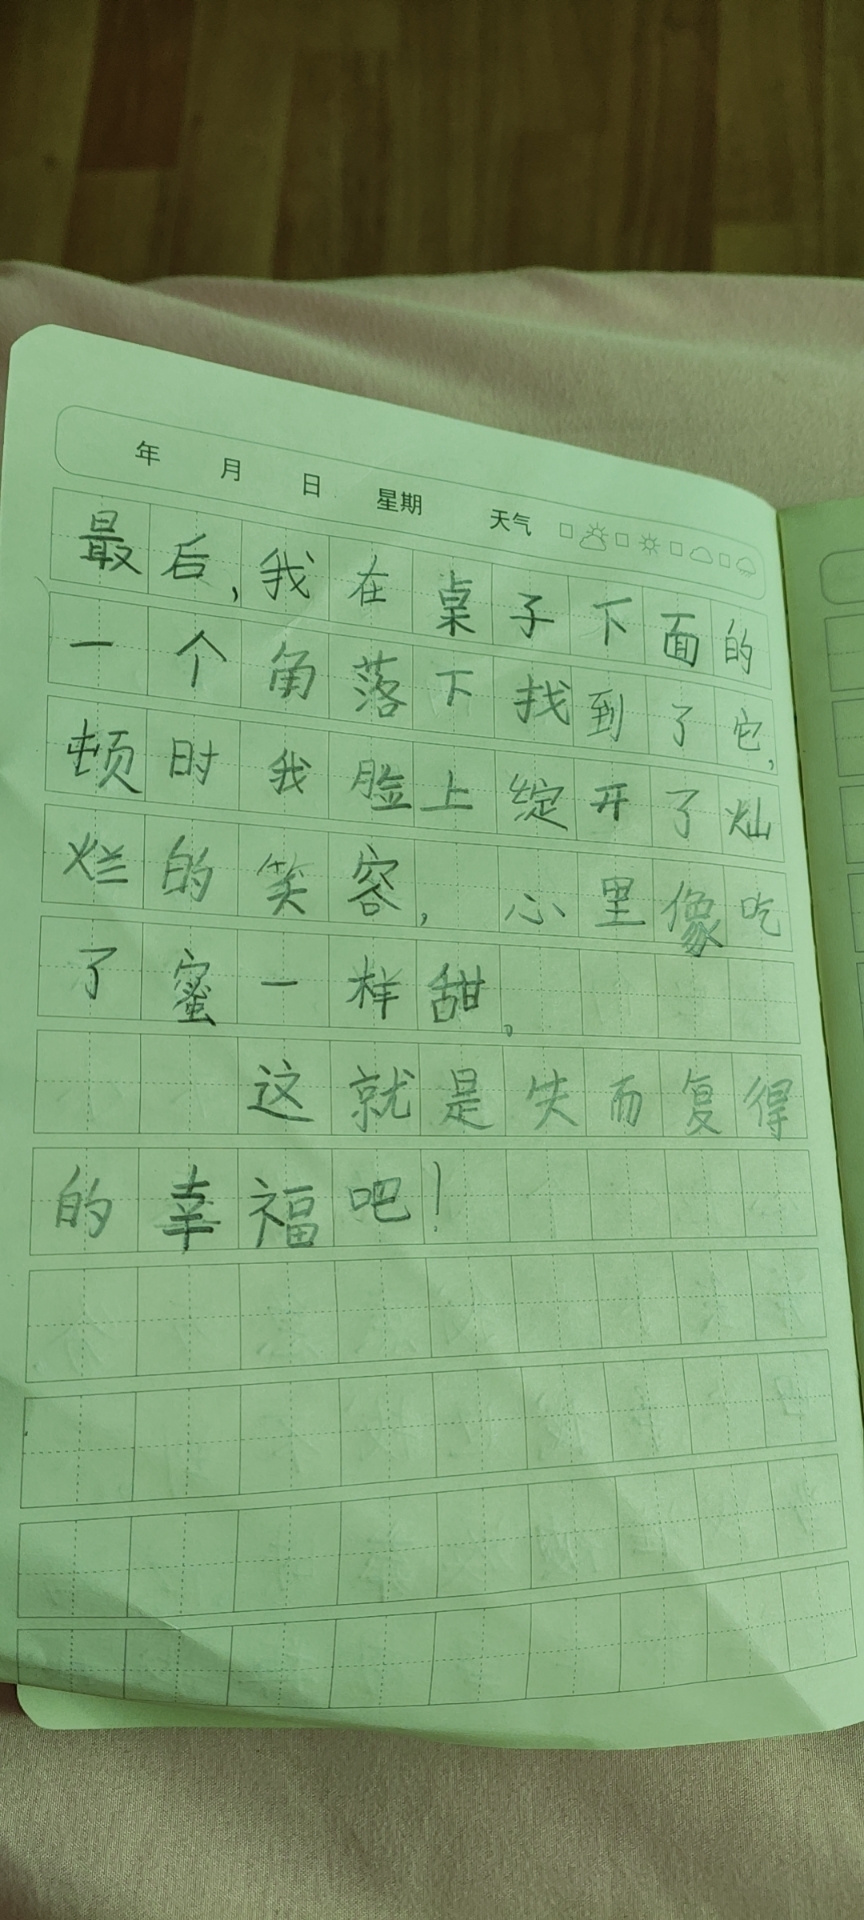 年 月 日 星期 天气
最后,我在桌子下面的
一个角落下找到了它,
顿时我脸上绽开了灿
烂的笑容, 心里像吃
了蜜一样甜。
这就是失而复得
的幸福吧!